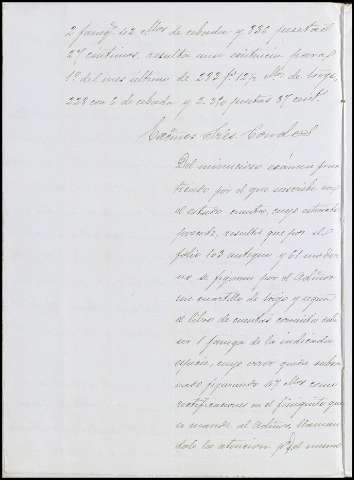 2 fanegs 42 ctllos de cebada y 832 pesetas
27 centimos, resulta una existencia para
1º del mes ultimo de de trigo,
228 con 2 de cebada y 2.310 pesetas 87 cents.
Excmos Sres Condes
Del minucioso exámen prac
ticado por el que suscribe en
el estado cuatro, cuyo estracto
precede, resulta que por el
folio 103 antiguo y 61 moder
no se figuran por el Admor
un cuartillo de trigo y segun
el libro de cuentas consta
ser 1 fanega de la indicada
especie, cuyo error queda subsa
nado figurando 47 ctllos como
rectificaciones en el finiquito que
se manda al Admor, llaman
dole la atencion pª el mismo